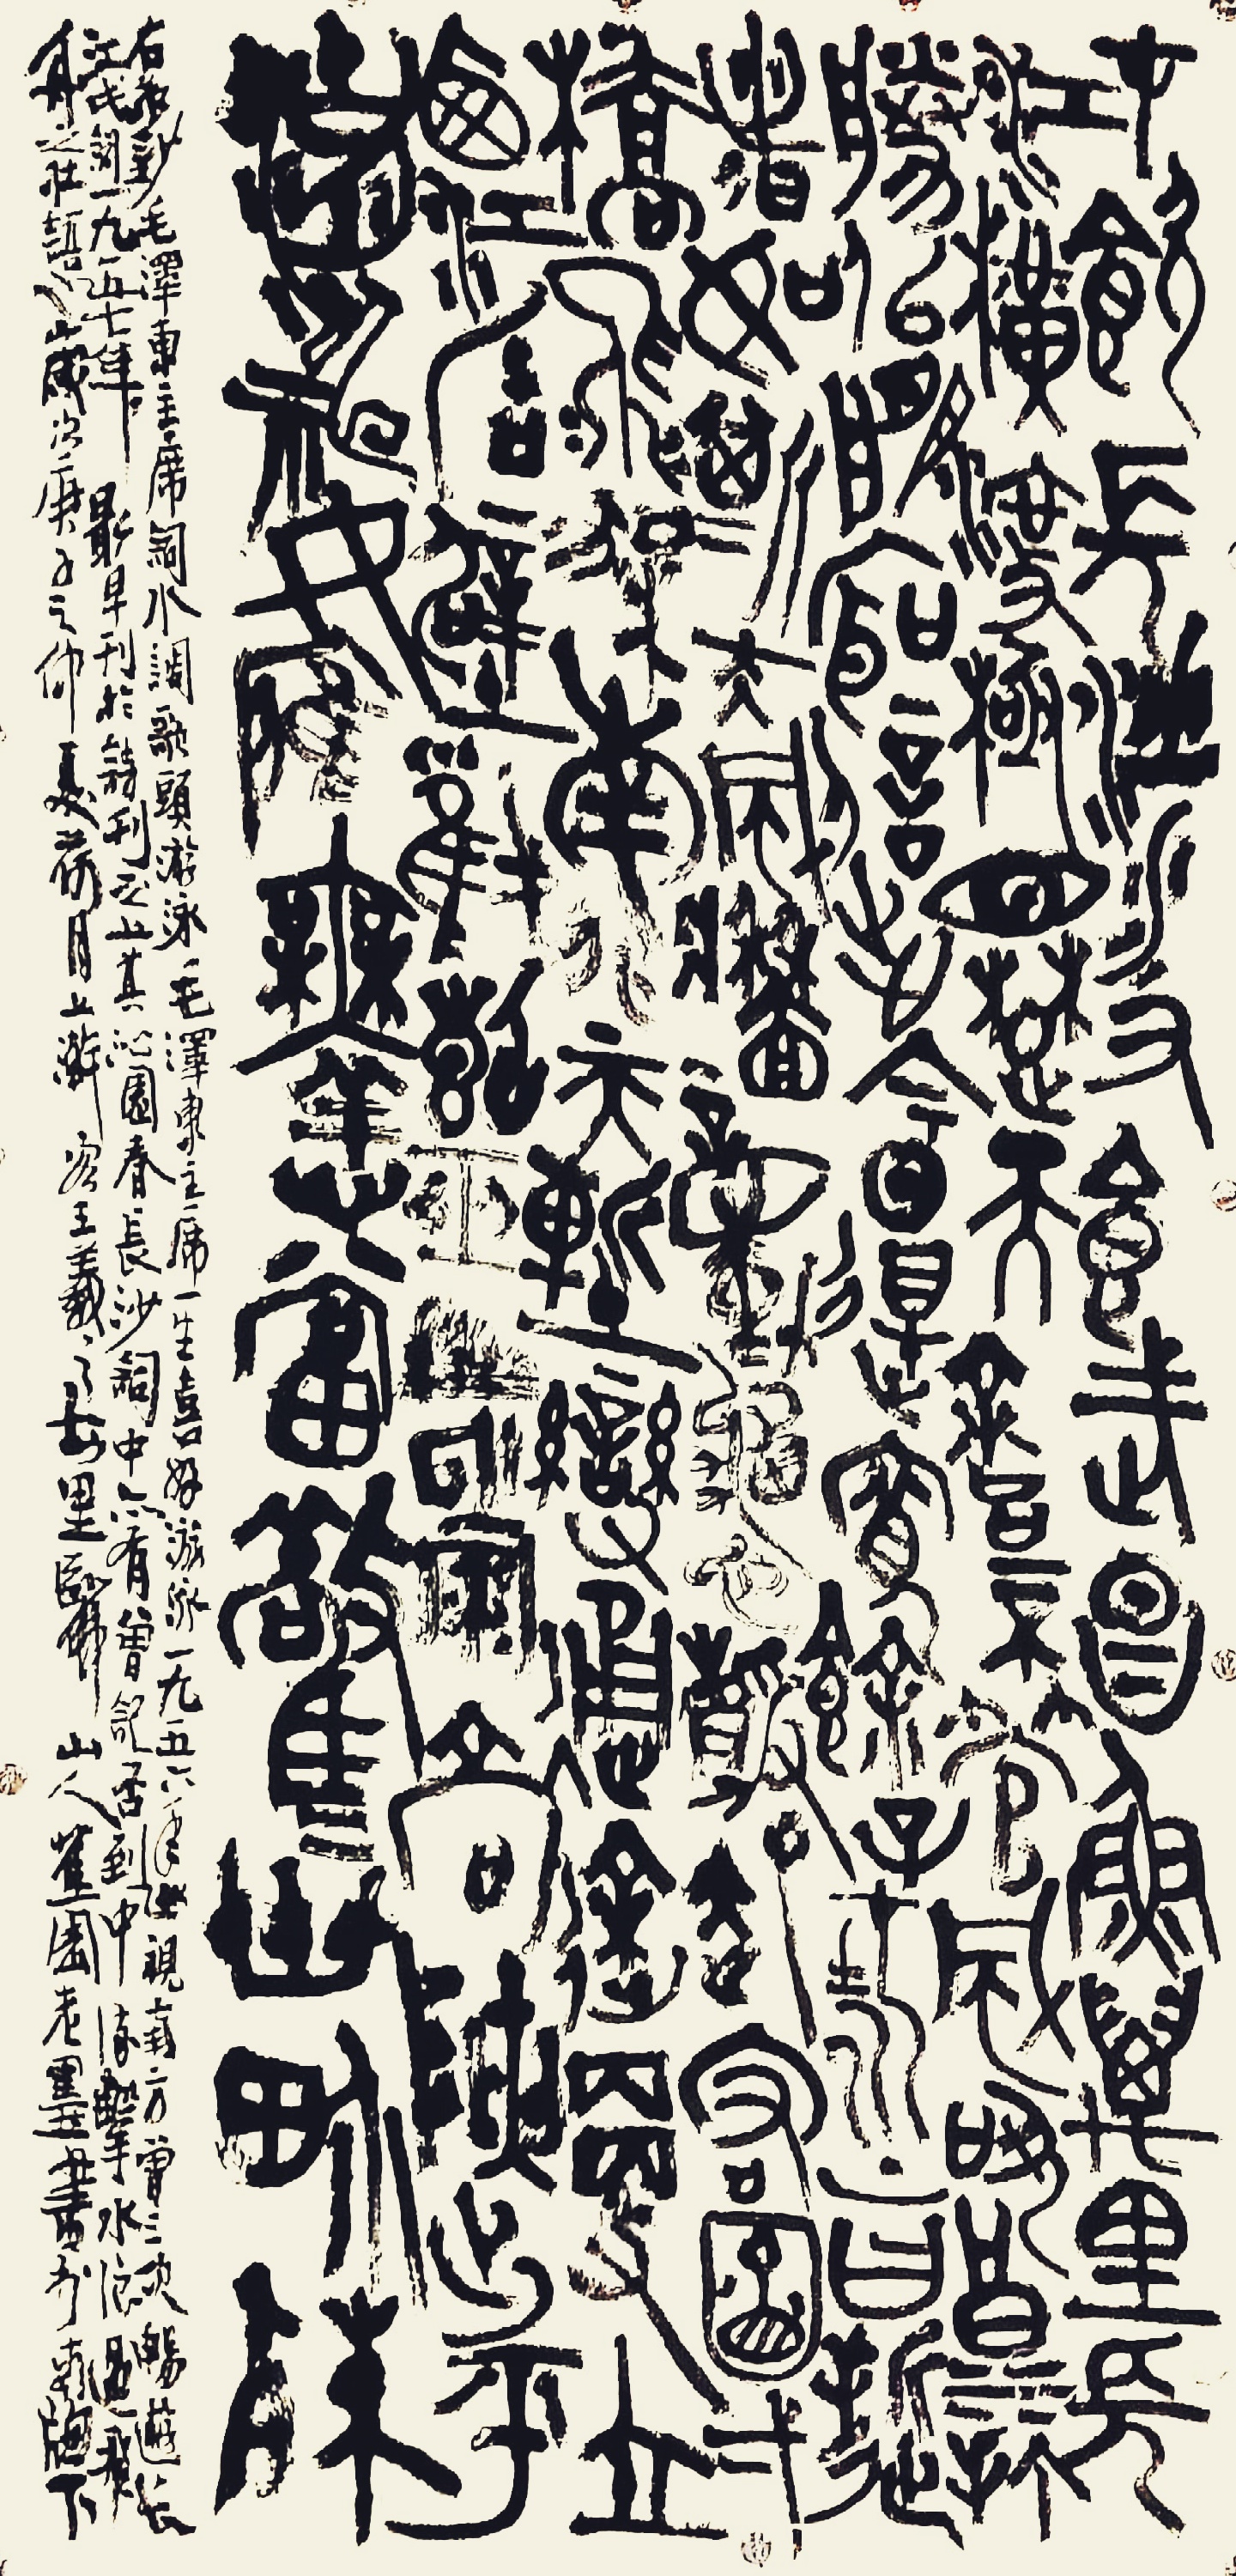 才飲長沙水又食武昌魚萬里長
江橫渡極目楚天舒不管風吹浪打
勝似閒庭信步今日得寬餘子在川上曰逝
者如斯夫風檣動龜蛇靜起宏圖一
橋飛架南北天塹變通途更立
西江石壁截斷巫山雲雨高峽出平
湖神女應無恙當驚世界殊
右為鈔毛澤東主席詞水調歌頭游泳毛澤東主席一生喜好游泳一九五六年巡視南方曾三次暢遊長
江成詞一九五七年最早刊於詩刊之上其沁園春長沙詞中亦有曾記否到中流擊水浪遏飛
舟之壯語歲次庚子之仲夏荷月上澣客王羲之故里臥佛山人蕉園老墨書於東牕下